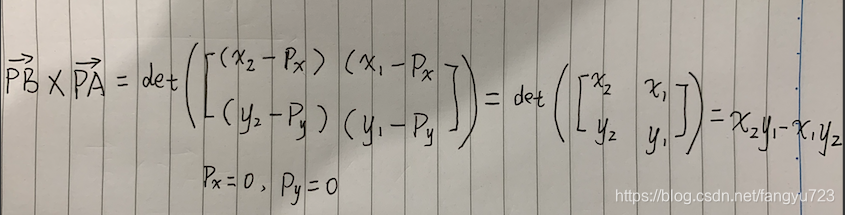 $\overrightarrow{PB} \times \overrightarrow{PA} = \det\left(\begin{bmatrix} (x_2 - P_x) & (x_1 - P_x \\ (y_2 - P_y) & (y_1 - P_y \end{bmatrix}\right) = \det\left(\begin{bmatrix} x_2 & x_1 \\ y_2 & y_1 \end{bmatrix}\right) = x_2y_1 - x_1y_2$
$P_x = 0, P_y = 0$
https://blog.csdn.net/fangyu723